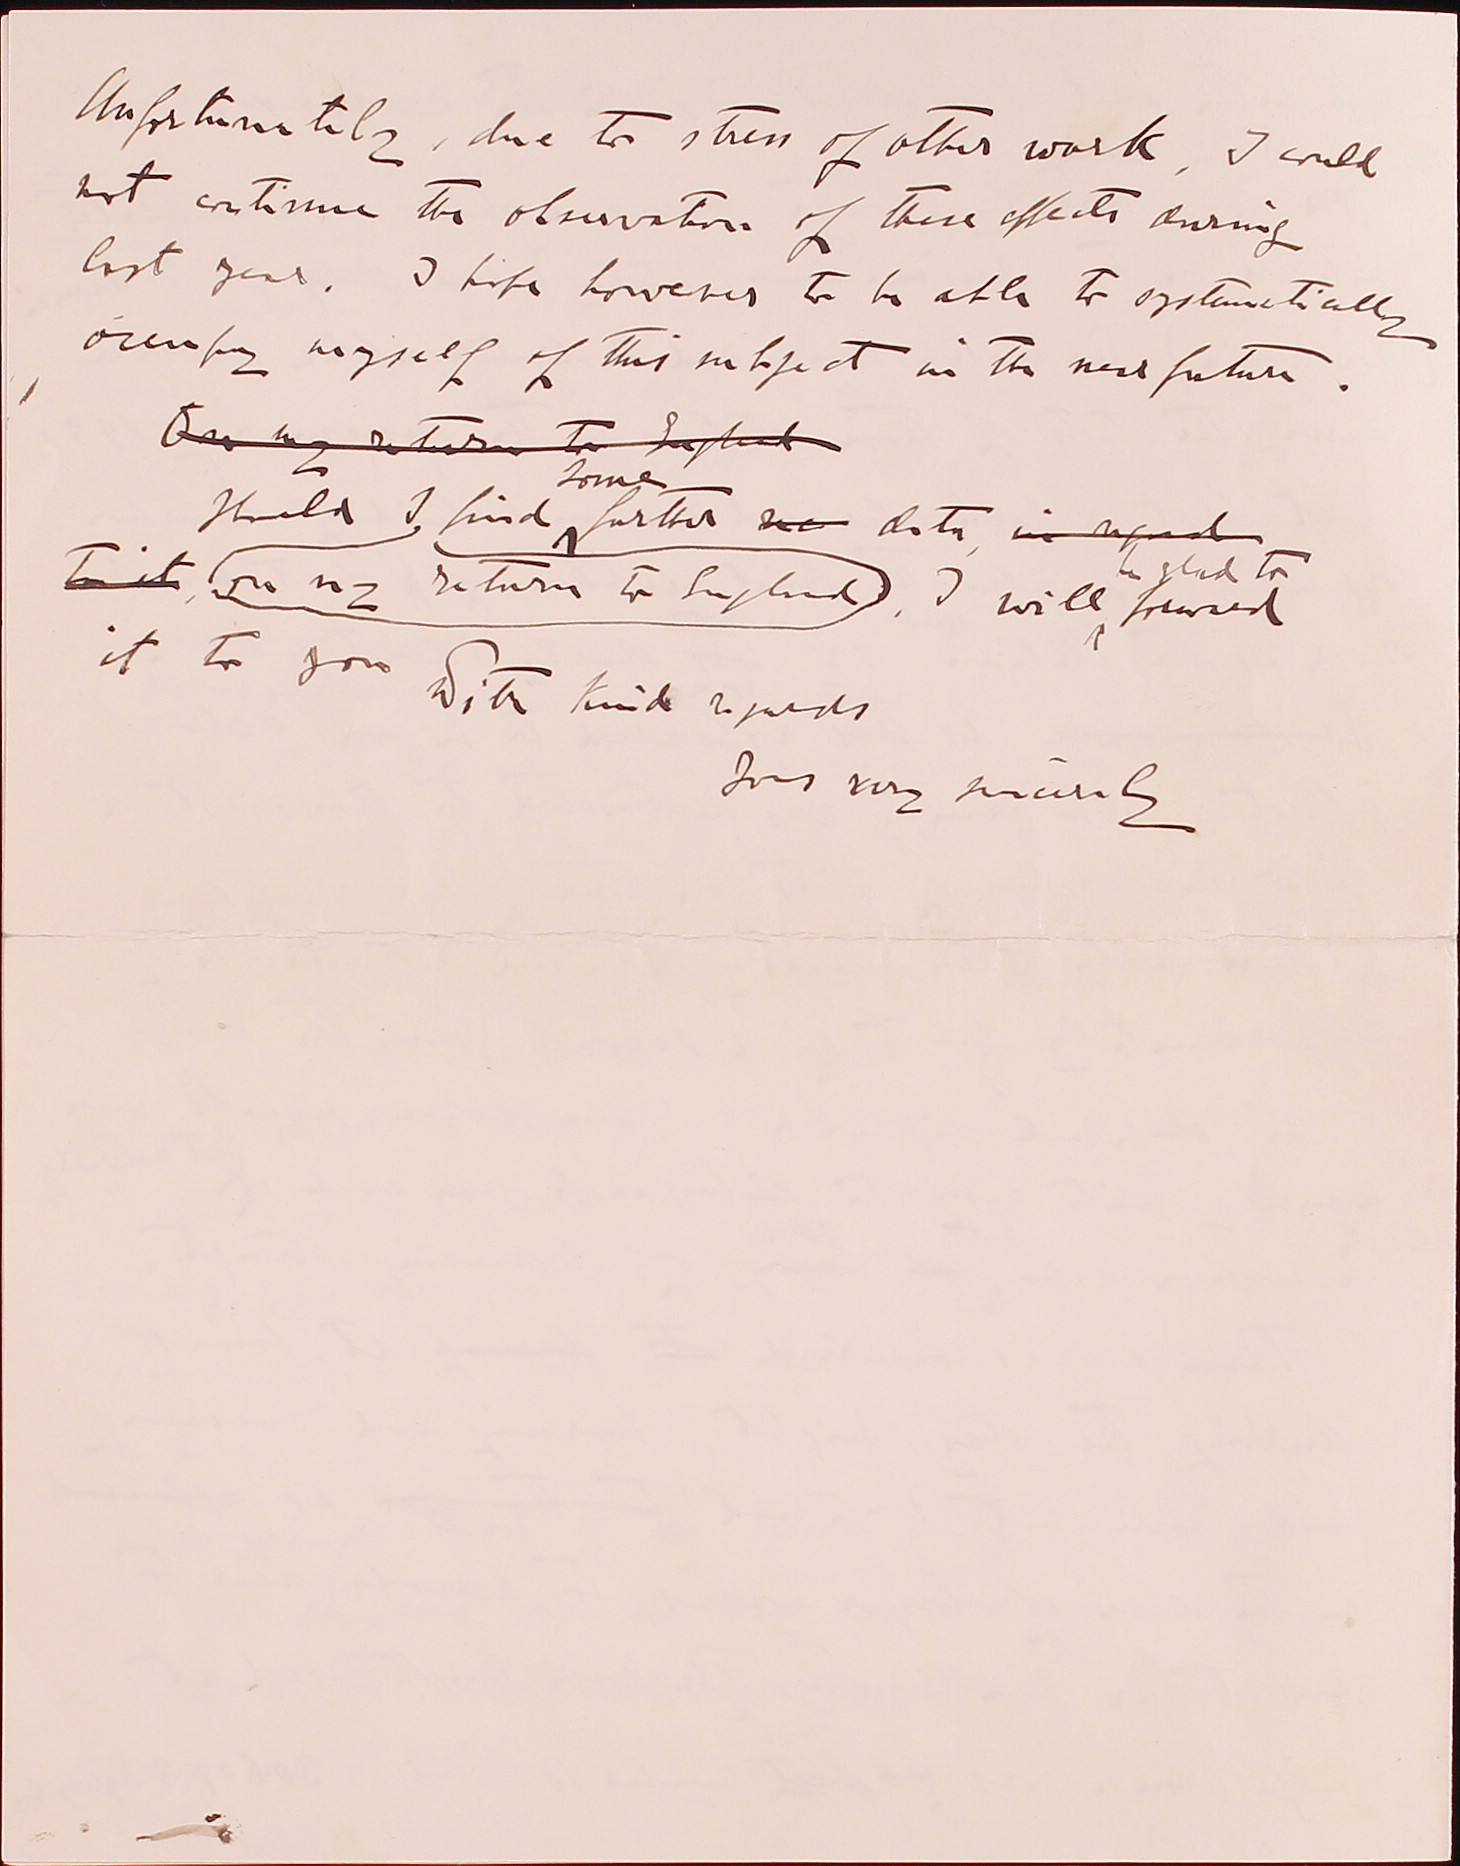 Unfortunately, due to stress of other work, I could
not continue the observation of these effects during
last year. I hope however to be able to systematically
occupy myself of this subject in the near future.
On my return to England
some
Should I find further data, in regard
be glad to
to it, on my return to England, I will forward
it to you
With kind regards
Yours very sincerely